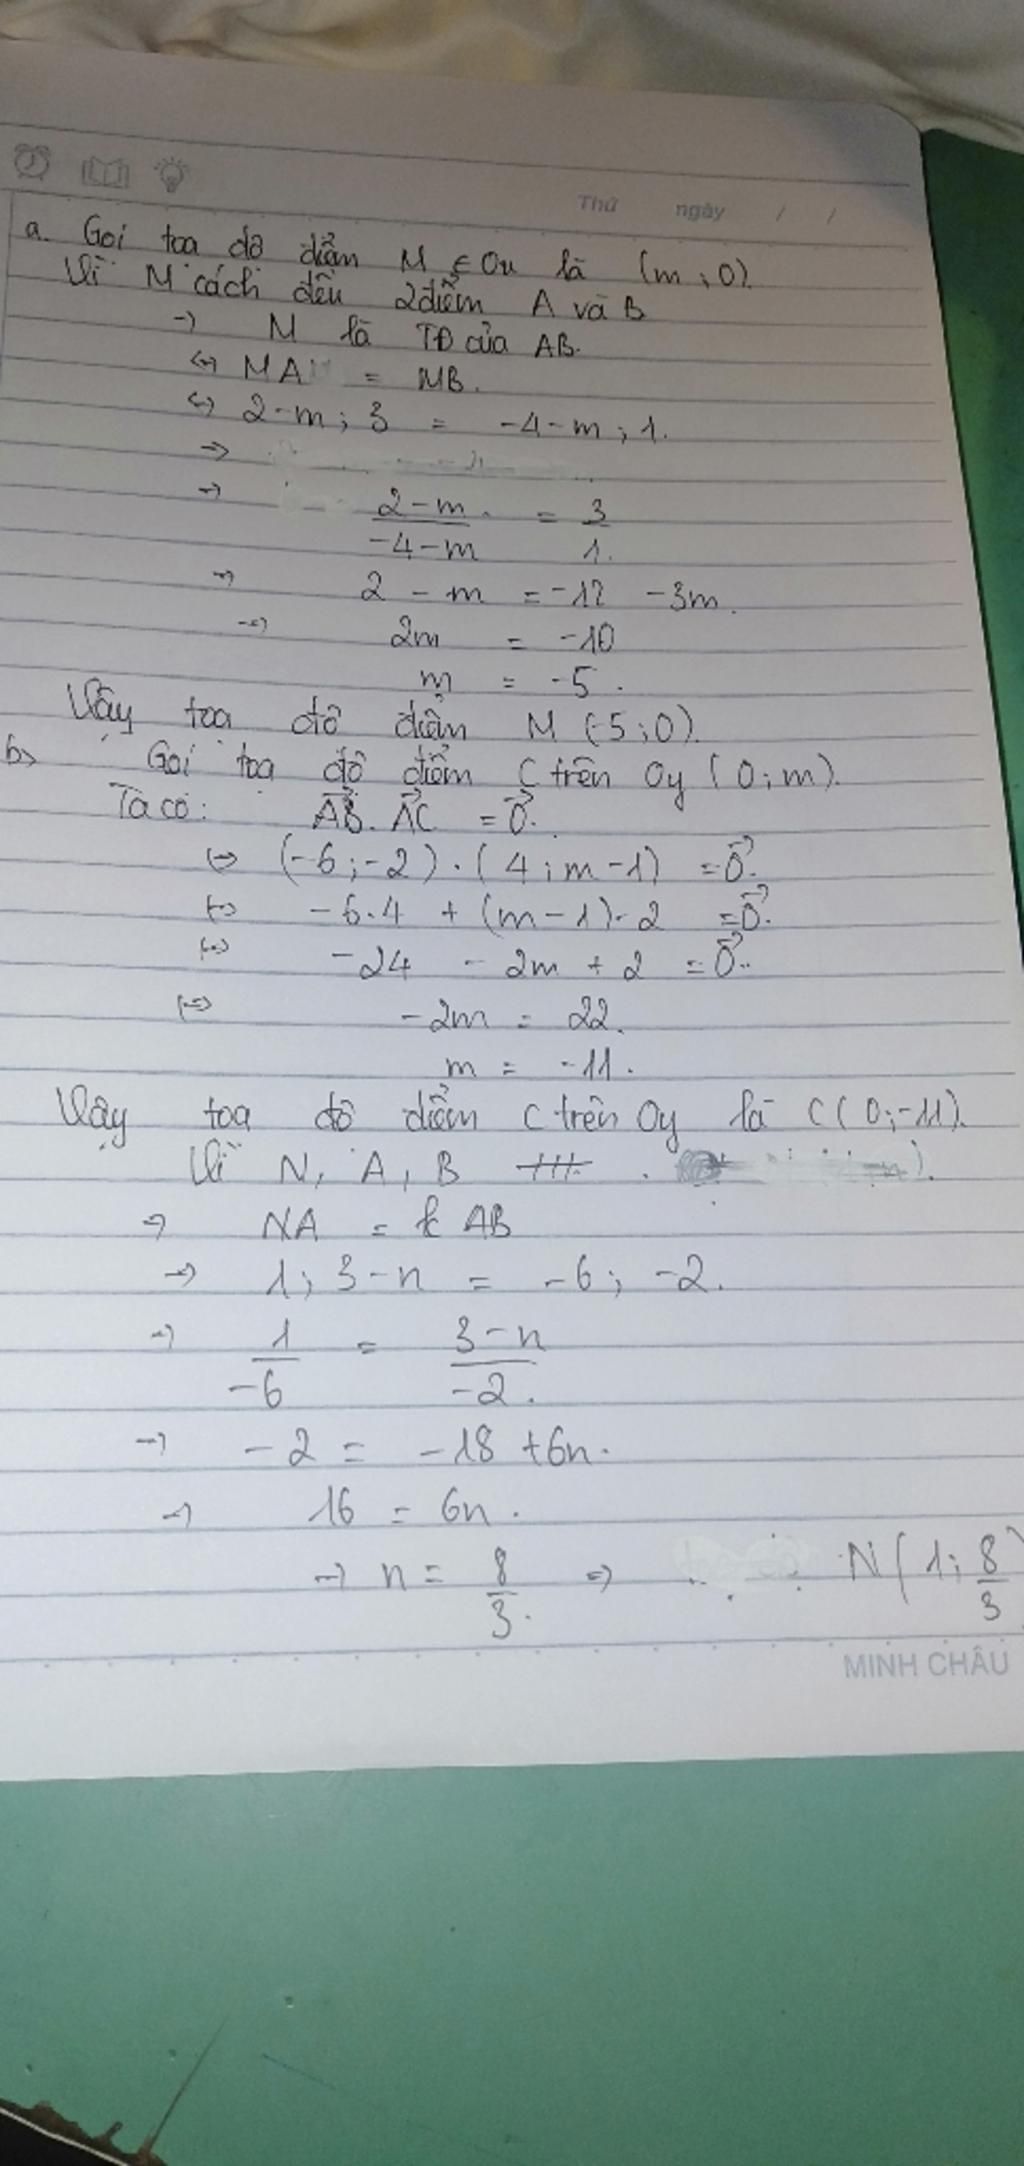 Thứ ngày / /
a. Gọi tọa độ điểm M ∈ Ox là (m; 0).
Vì M cách đều 2 điểm A và B
→ M là TĐ của AB.
↔ MA = MB.
↔ 2-m; 3 = -4-m; 1.
→
→ \frac{2-m}{-4-m} = \frac{3}{1}.
→ 2 - m = -12 -3m.
→ 2m = -10
m = -5.
Vậy tọa độ điểm M (-5; 0).
b) Gọi tọa độ điểm C trên Oy (0; m).
Ta có: \vec{AB}. \vec{AC} = \vec{0}.
⇔ (-6; -2) . (4; m-1) = \vec{0}.
↔ -6.4 + (m-1).2 = \vec{0}.
↔ -24 - 2m + 2 = \vec{0}.
⇔ -2m = 22.
m = -11.
Vậy tọa độ điểm C trên Oy là C(0; -11).
Vì N, A, B
→ NA = k AB
→ 1; 3-n = -6; -2.
→ \frac{1}{-6} = \frac{3-n}{-2}.
→ -2 = -18 + 6n.
→ 16 = 6n.
→ n = \frac{8}{3}. ⇒ N(1; \frac{8}{3})
MINH CHÂU